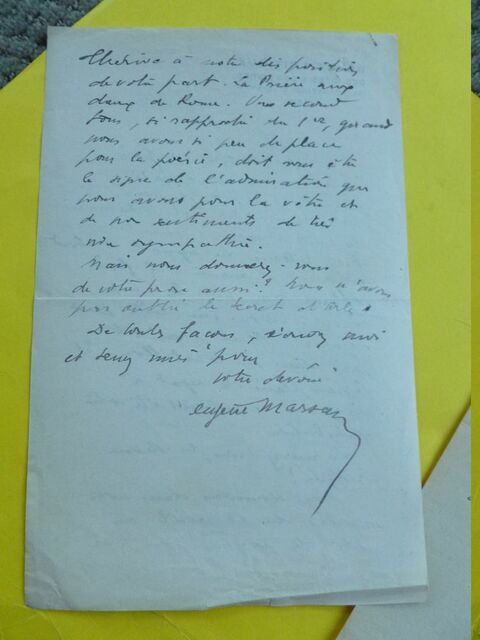 Thérive à notre disposition
de votre part. La Prière aux
dieux de Rome. Une seconde
fois, si rapproché du 1er, quand
nous avons si peu de place
pour la poésie, doit vous être
le signe de l'admiration que
nous avons pour la vôtre et
de nos sentiments de très
vive sympathie.
Mais nous donnerez-vous
de votre prose aussi? Nous n'avons
pas oublié le secret
De toutes façons, moi
et tenez-moi pour
votre dévoué
Eugène Marsan